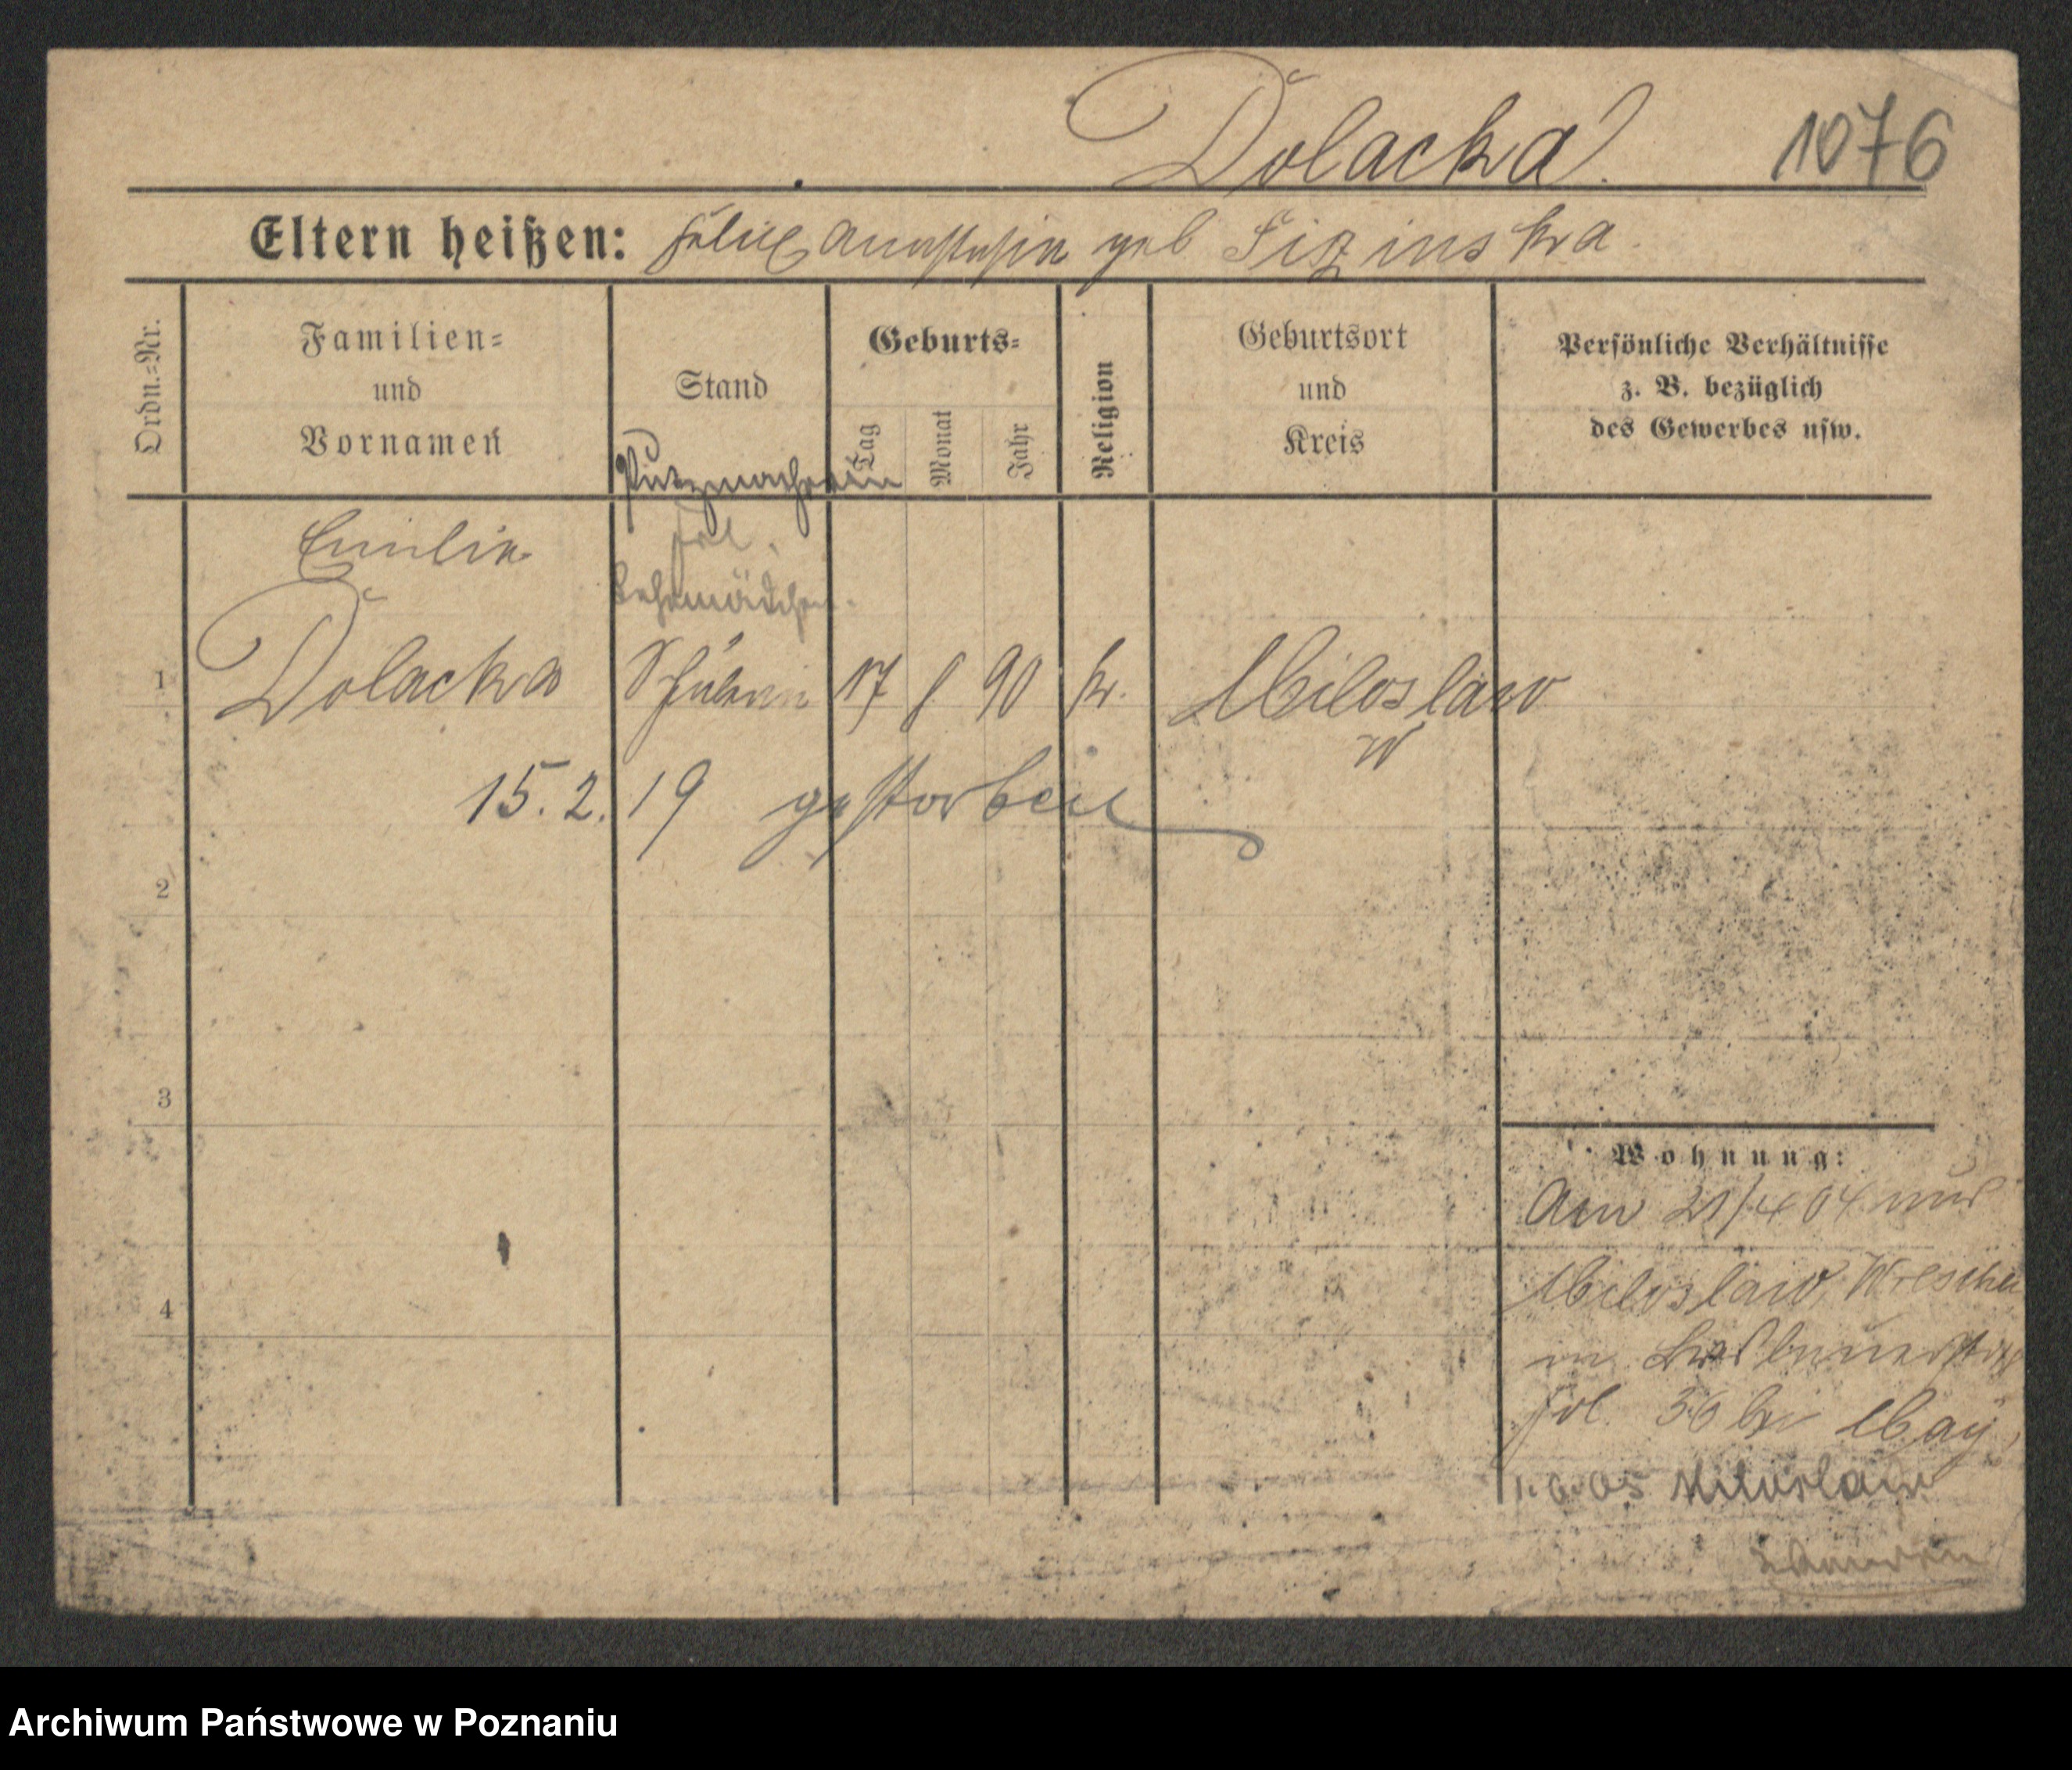 Dolacka.
1076
Eltern heißen: Felix Anastasia geb
Ordn.-Nr.
Familien-
und
Vornamen
Stand
Geburts-
Tag
Monat
Jahr
Religion
Geburtsort
und
Kreis
Persönliche Verhältnisse
z. B. bezüglich
des Gewerbes usw.
Putzmacherin
Frl.
Lehrmädchen.
Emilie
1 Dolacka Schülerin 17 90 k. Miloslaw
W
15. 2. 19 gestorben
2
3
4
Wohnung:
Am 21/4 04 aus
Miloslaw,
in
36 bei May,
Miloslaw
Archiwum Państwowe w Poznaniu